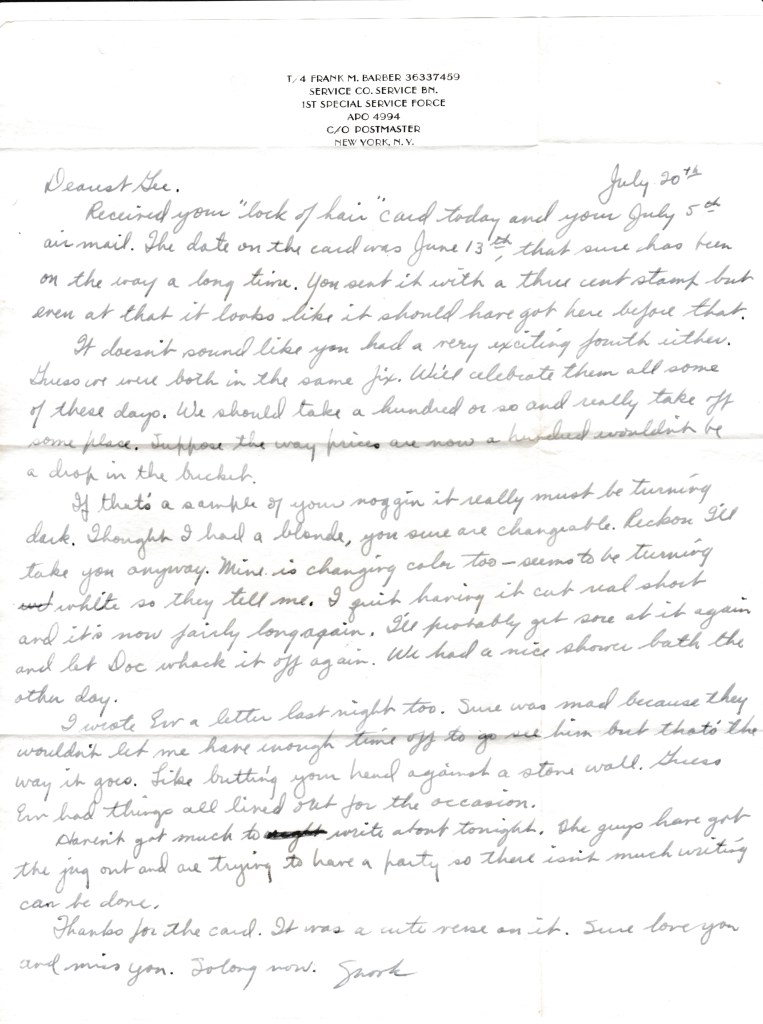 T/4 FRANK M. BARBER 36337459
SERVICE CO. SERVICE BN.
1ST SPECIAL SERVICE FORCE
APO 4994
C/O POSTMASTER
NEW YORK, N.Y.
July 20th
Dearest Gee.
Received your "lock of hair" card today and your July 5th
air mail. The date on the card was June 13th, that sure has been
on the way a long time. You sent it with a three cent stamp but
even at that it looks like it should have got here before that.
It doesn't sound like you had a very exciting fourth either.
Guess we were both in the same fix. We'll celebrate them all some
of these days. We should take a hundred or so and really take off
some place. Suppose the way prices are now a hundred wouldn't be
a drop in the bucket.
If that's a sample of your noggin it really must be turning
dark. Thought I had a blonde, you sure are changeable. Reckon I'll
take you anyway. Mine is changing color too - seems to be turning
white so they tell me. I quit having it cut real short
and it's now fairly long again. I'll probably get sore at it again
and let Doc whack it off again. We had a nice shower bath the
other day.
I wrote Erv a letter last night too. Sure was mad because they
wouldn't let me have enough time off to go see him but that's the
way it goes. Like butting your head against a stone wall. Guess
Erv had things all lined out for the occasion.
Haven't got much to write about tonight. The guys have got
the jug out and are trying to have a party so there isn't much writing
can be done.
Thanks for the card. It was a cute verse on it. Sure love you
and miss you. So long now. Snook